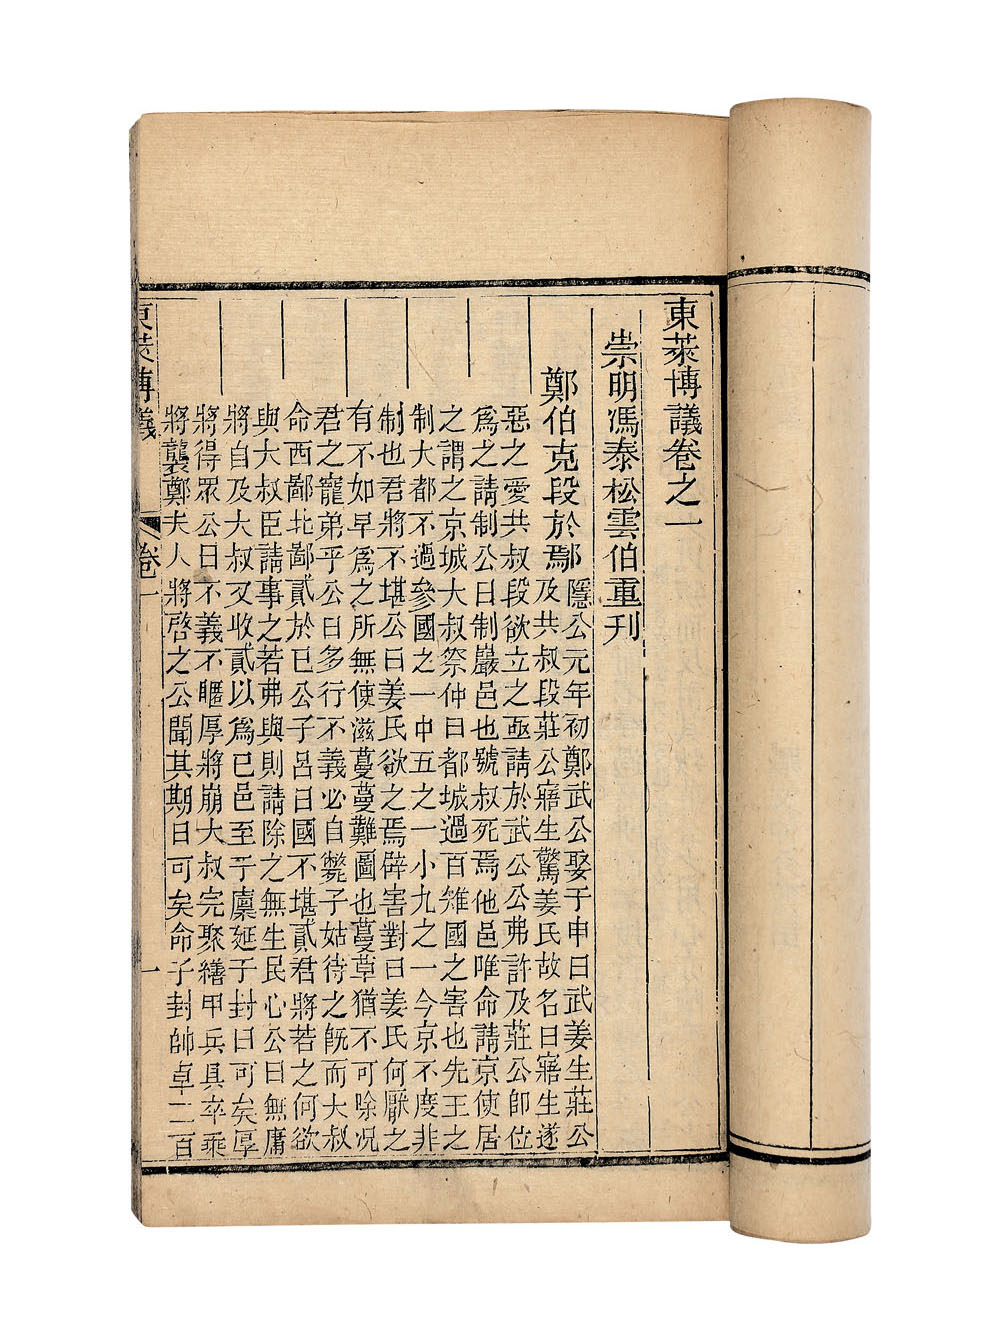 東萊博議卷之一
崇明馮泰松雲伯重刊
鄭伯克段於鄢
隱公元年初鄭武公娶于申曰武姜生莊公
及共叔段莊公寤生驚姜氏故名曰寤生遂
惡之愛共叔段欲立之亟請於武公公弗許及莊公卽位
爲之請制公曰制巖邑也號叔死焉他邑唯命請京使居
之謂之京城大叔祭仲曰都城過百雉國之害也先王之
制大都不過參國之一中五之一小九之一今京不度非
制也君將不堪公曰姜氏欲之焉辟害對曰姜氏何厭之
有不如早爲之所無使滋蔓蔓難圖也蔓草猶不可除况
君之寵弟乎公曰多行不義必自斃子姑待之旣而大叔
命西鄙北鄙貳於已公子呂曰國不堪貳君將若之何欲
與大叔臣請事之若弗與則請除之無生民心公曰無庸
將自及大叔又收貳以爲已邑至于廩延子封曰可矣厚
將得眾公曰不義不暱厚將崩大叔完聚繕甲兵具卒乘
將襲鄭夫人將啓之公聞其期曰可矣命子封帥車二百
東萊博議
卷一
一